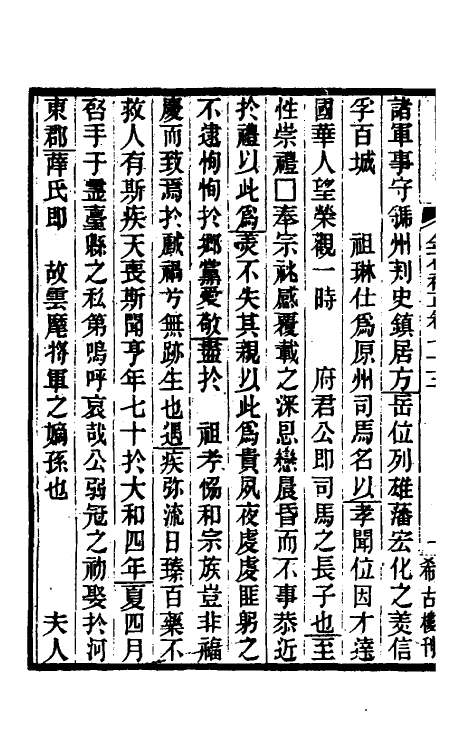 諸軍事守虢州刺史鎮居方岳位列雄藩宏化之美信
孚百城　　祖琳仕爲原州司馬名以孝聞位因才達
國華人望榮觀一時　　府君公即司馬之長子也至
性崇禮囗奉宗祧感覆載之深恩戀晨昏而不事恭近
於禮以此爲羙不失其親以此爲貴夙夜虔虔匪躬之
不逮恂恂於鄉黨愛敬盡於　祖考恊和宗族豈非福
慶而致焉於戲禍兮無跡生也遇疾弥流日臻百藥不
救人有斯疾天喪斯聞亨年七十於大和四年夏四月
啓手于靈臺縣之私第嗚呼哀哉公弱冠之初娶於河
東郡薛氏即　故雲麾將軍之嫡孫也　　　夫人
希古樓刊